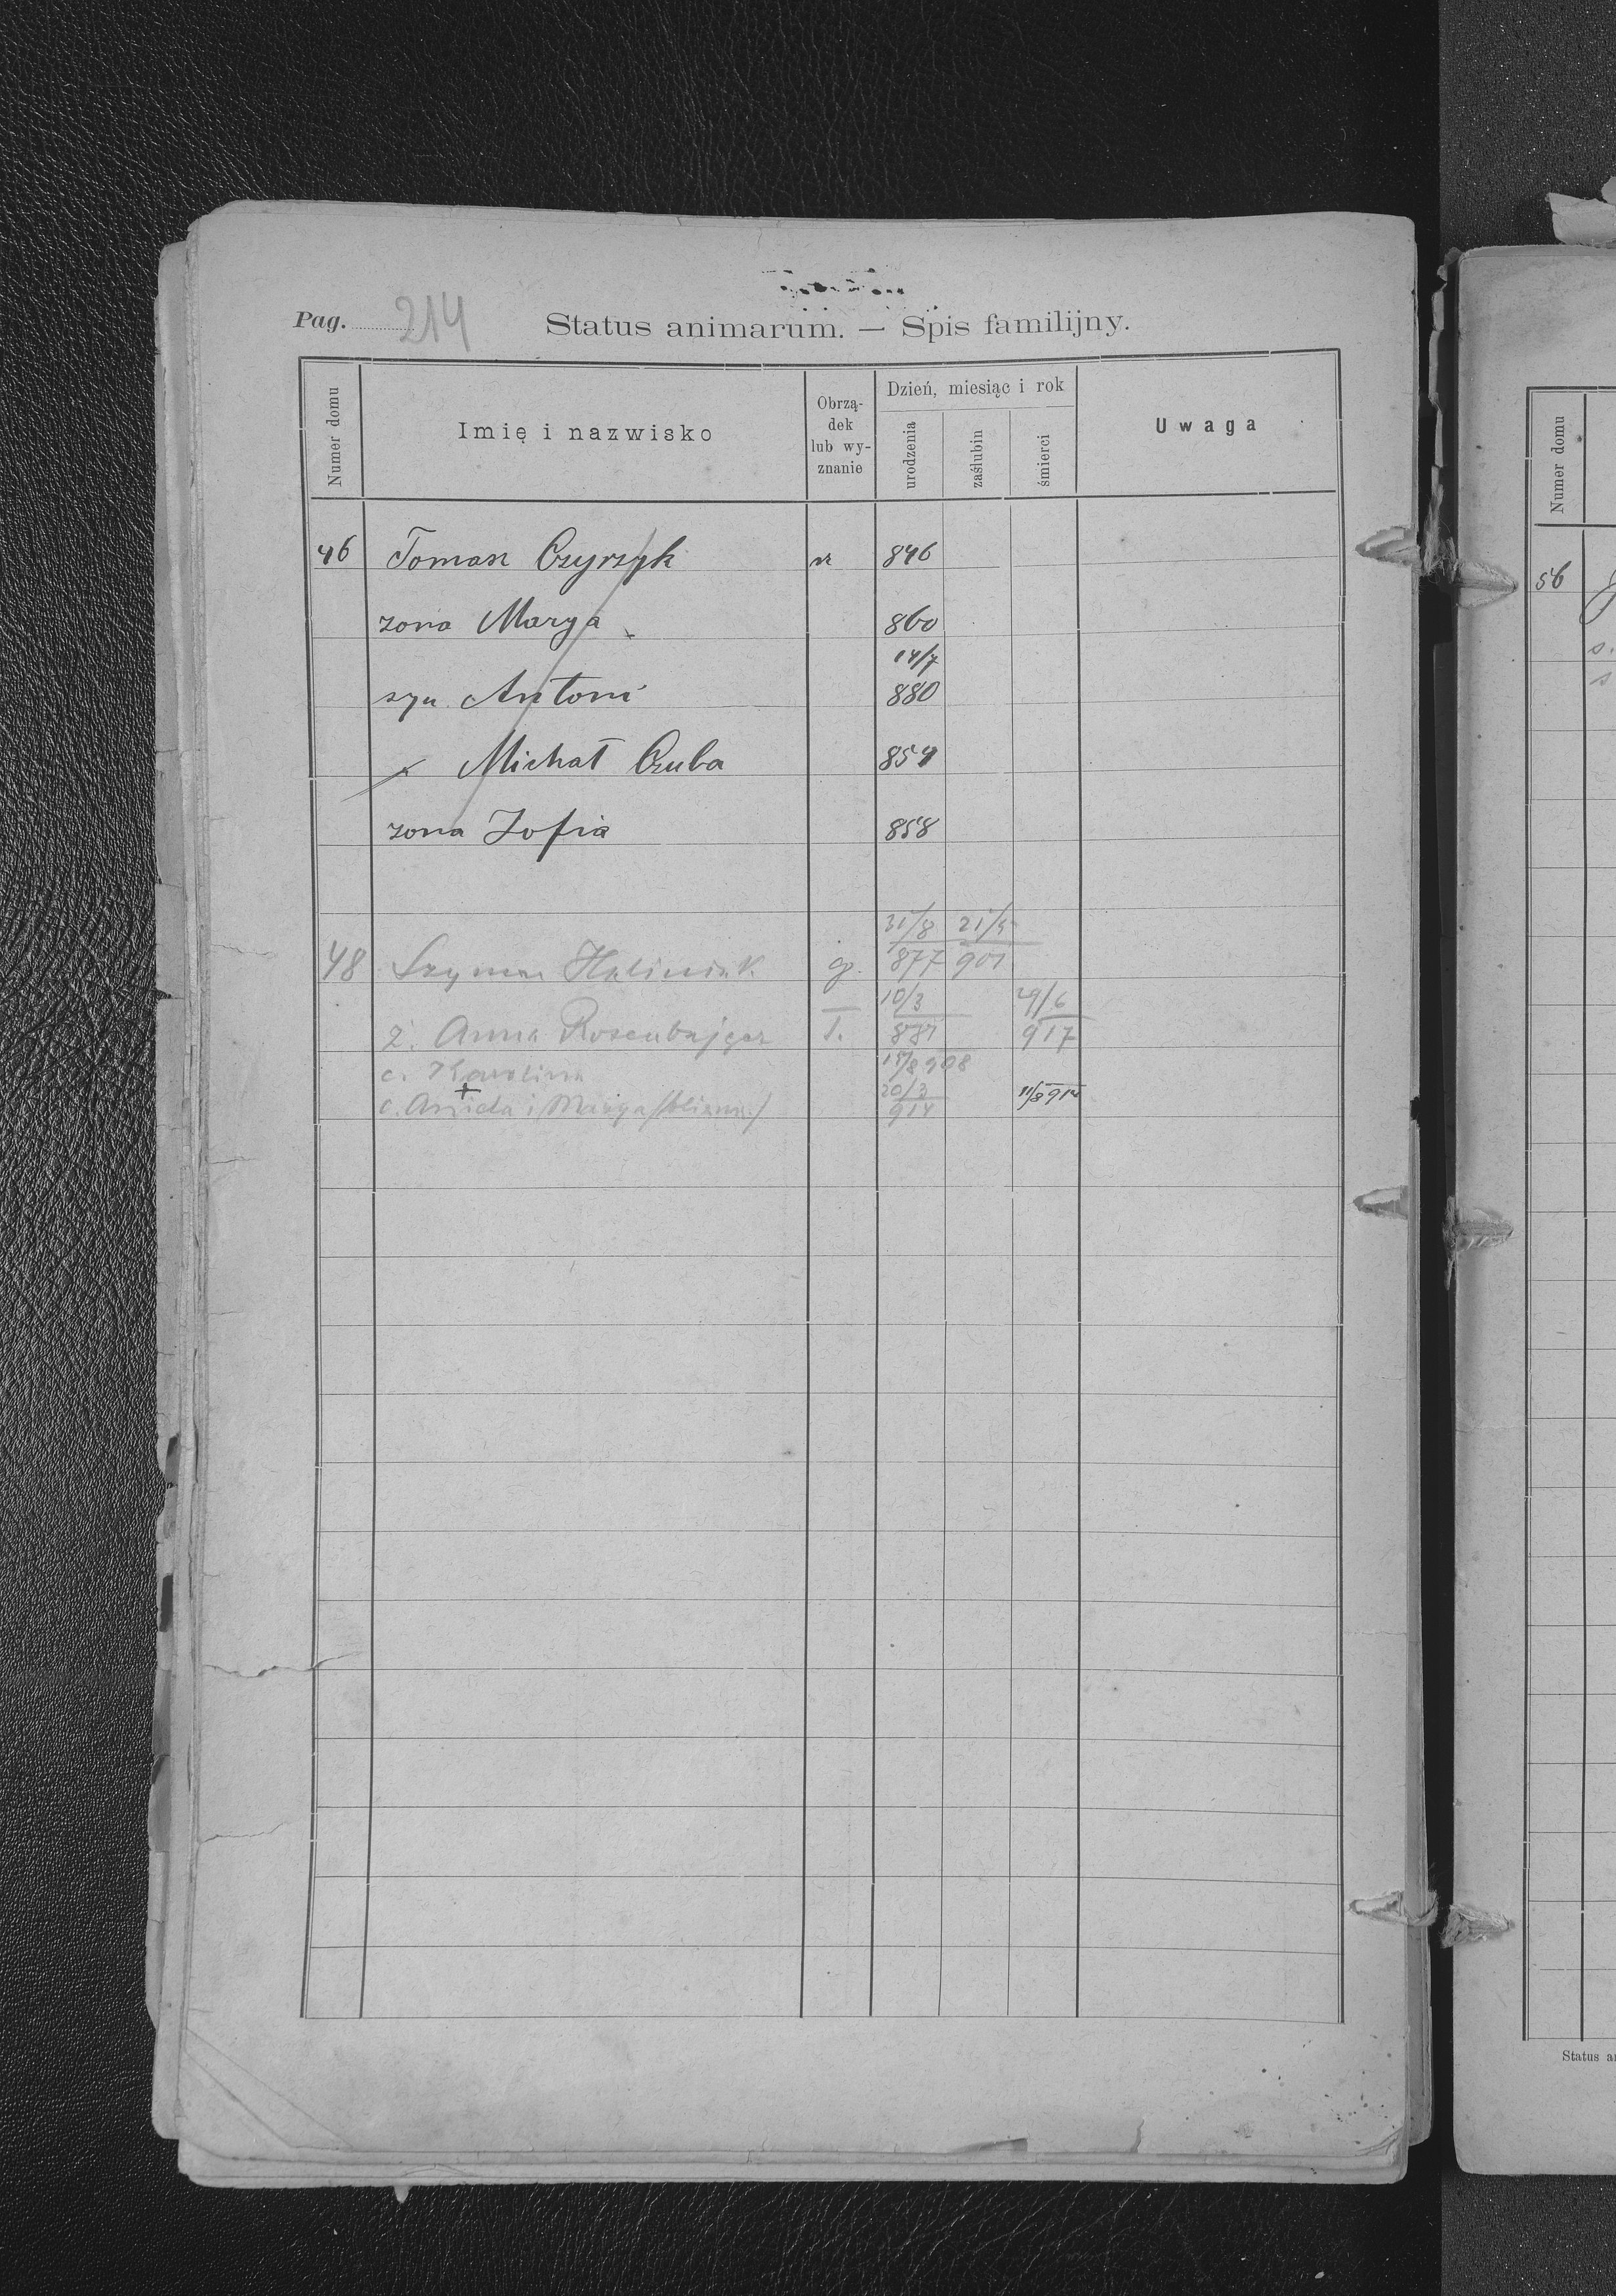 Pag. 214
Status animarum. — Spis familijny.
Numer domu
Imię i nazwisko
Obrzą-
dek
lub wy-
znanie
Dzień, miesiąc i rok
urodzenia
zaślubin
śmierci
Uwaga
46 Tomasz Czyrzyk 846
żona Marya 860
14/7
syn Antoni 880
Michał Czuba 854
żona Zofia 858
31/8 21/5
48 Szymon 877 901
10/3 29/6
ż. Anna Rosenbajger ł. 881 917
c. Karolina 15/8 908
c. Aniela i Marya (bliźn.) 20/3 11/8 914
914
Numer domu
56
s.
s